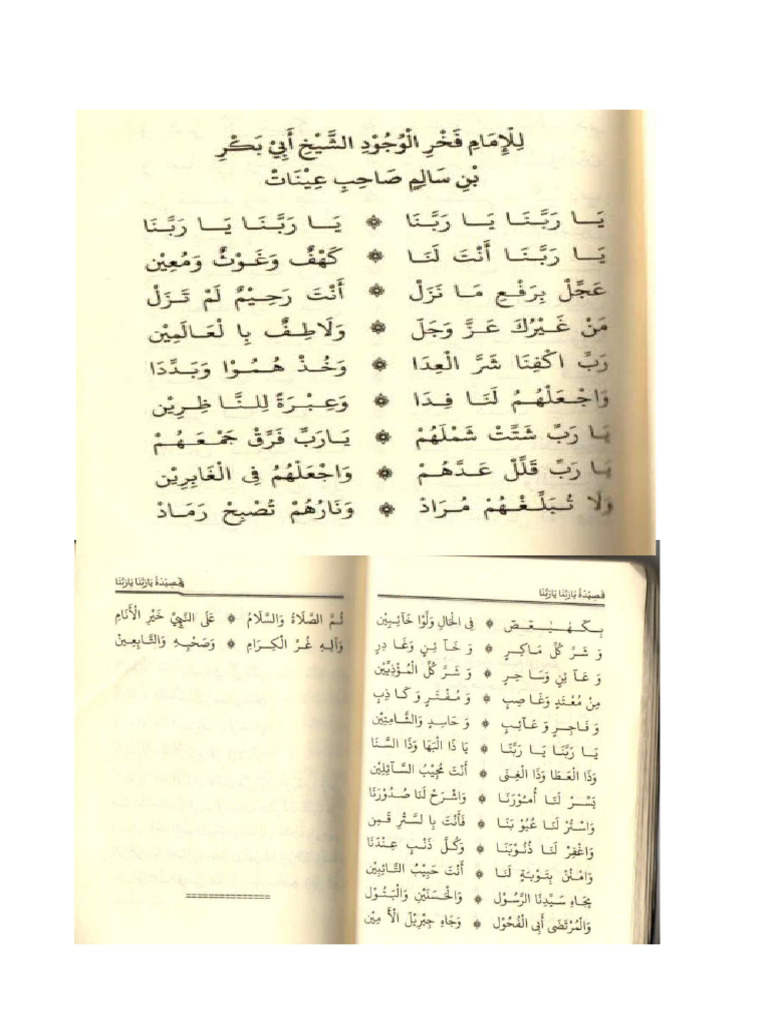 لِلْإِمَامِ فَخْرِ الْوُجُوْدِ الشَّيْخِ أَبِيْ بَكْرِ
بْنِ سَالِمِ صَاحِبِ عِيْنَاتْ
يَــا رَبَّنَـا يَـا رَبَّنَـا ۞ يَـا رَبَّنَـا يَـا رَبَّنَا
يَــا رَبَّنَـا أَنْتَ لَنَـا ۞ كَهْفٌ وَغَوْثٌ وَمُعِيْن
عَجِّلْ بِرَفْعِ مَـا نَزَلْ ۞ أَنْتَ رَحِيْمٌ لَمْ تَزَلْ
مَنْ غَيْرُكَ عَزَّ وَجَلّ ۞ وَلَاطِفٌ بِا لْعَالَمِيْن
رَبِّ اكْفِنَا شَرَّ الْعِدَا ۞ وَخُذْ هُمُوْا وَبَدِّدَا
وَاجْعَلْهُمُ لَنَـا فِـدَا ۞ وَعِبْرَةً لِلنَّـا ظِرِيْن
يَـا رَبِّ شَتِّتْ شَمْلَهُمْ ۞ يَـارَبِّ فَرِّقْ جَمْعَهُـمْ
يَـا رَبِّ قَلِّلْ عَـدَّهُـمْ ۞ وَاجْعَلْهُمُ فِى الْغَابِرِيْن
وَلَا تُبَلِّغْهُمْ مُرَادْ ۞ وَنَارُهُمْ تُصْبِحْ رَمَادْ
قَصِيْدَةُ يَارَبَّنَا يَارَبَّنَا
بِـكـهـيـعـص ۞ فِى الْحَالِ وَلَّوْا خَآئِبِيْن
وَ شَرِّ كُلِّ مَاكِرٍ ۞ وَ خَآ ئِنٍ وَغَا دِرٍ
وَ عَآ ئِنٍ وَسَا حِرٍ ۞ وَ شَرِّ كُلِّ الْمُؤْذِيِيْن
مِنْ مُعْتَدٍ وَغَا صِبٍ ۞ وَ مُفْتَرٍ وَ كَا ذِبٍ
وَ فَاجِرٍ وَ عَآئِبٍ ۞ وَ حَاسِدٍ وَالشَّامِتِيْن
يَـا رَبَّنَا يَـا رَبَّنَا ۞ يَا ذَا الْبَهَا وَذَا السَّنَا
وَذَا الْعَطَا وَذَا الْغِنَى ۞ أَنْتَ مُجِيْبُ السَّآئِلِيْن
يَسِّرْ لَنَا أُمُوْرَنَا ۞ وَاشْرَحْ لَنَا صُدُوْرَنَا
وَاسْتُرْ لَنَا عُيُوْ بَنَا ۞ فَأَنْتَ بِا لسَّتْرِ قَمِن
وَاغْفِرْ لَنَا ذُنُوْبَنَا ۞ وَكُلَّ ذَنْبٍ عِنْدَنَا
وَامْنُنْ بِتَوْبَةٍ لَنَا ۞ أَنْتَ حَبِيْبُ التَّائِبِيْن
بِجَاهِ سَيِّدِنَا الرَّسُوْل ۞ وَالْحَسَنَيْنِ وَالْبَتُوْل
وَالْمُرْتَضَى أَبِى الْفُحُوْل ۞ وَجَاهِ جِبْرِيْلَ الْأَ مِيْن
قَصِيْدَةُ يَارَبَّنَا يَارَبَّنَا
ثُمَّ الصَّلَاةُ وَالسَّلَامُ ۞ عَلَى النَّبِيِّ خَيْرِ الْأَنَام
وَآلِهِ غُرِّ الْكِرَامِ ۞ وَصَحْبِهِ وَالتَّابِعِيْن